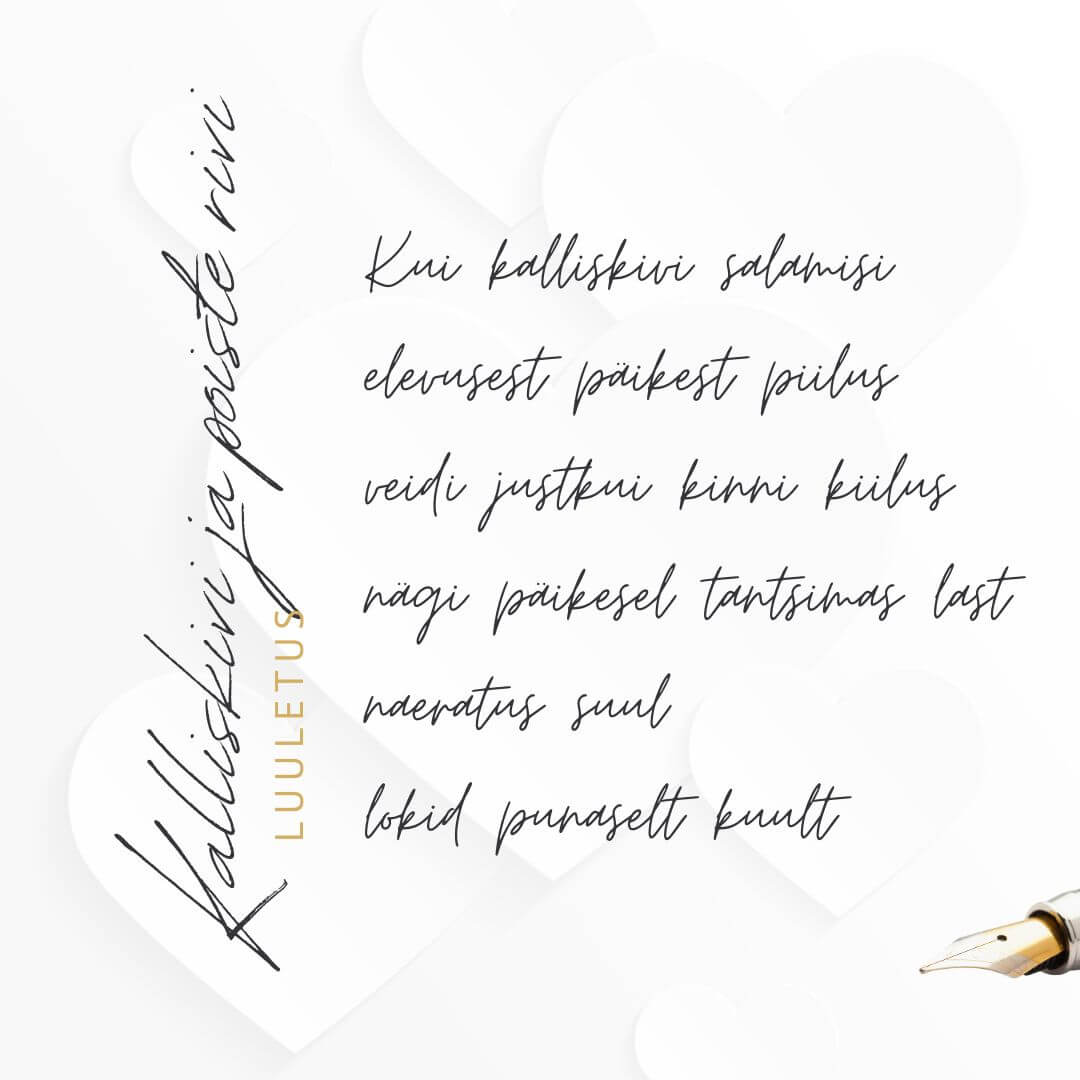 Kalliskivi ja poiste rivi
LUULETUS
Kui kalliskivi salamisi
elevusest päikest piilus
veidi justkui kinni kiilus
nägi päikesel tantsimas last
naeratus suul
lokid punaselt kuult